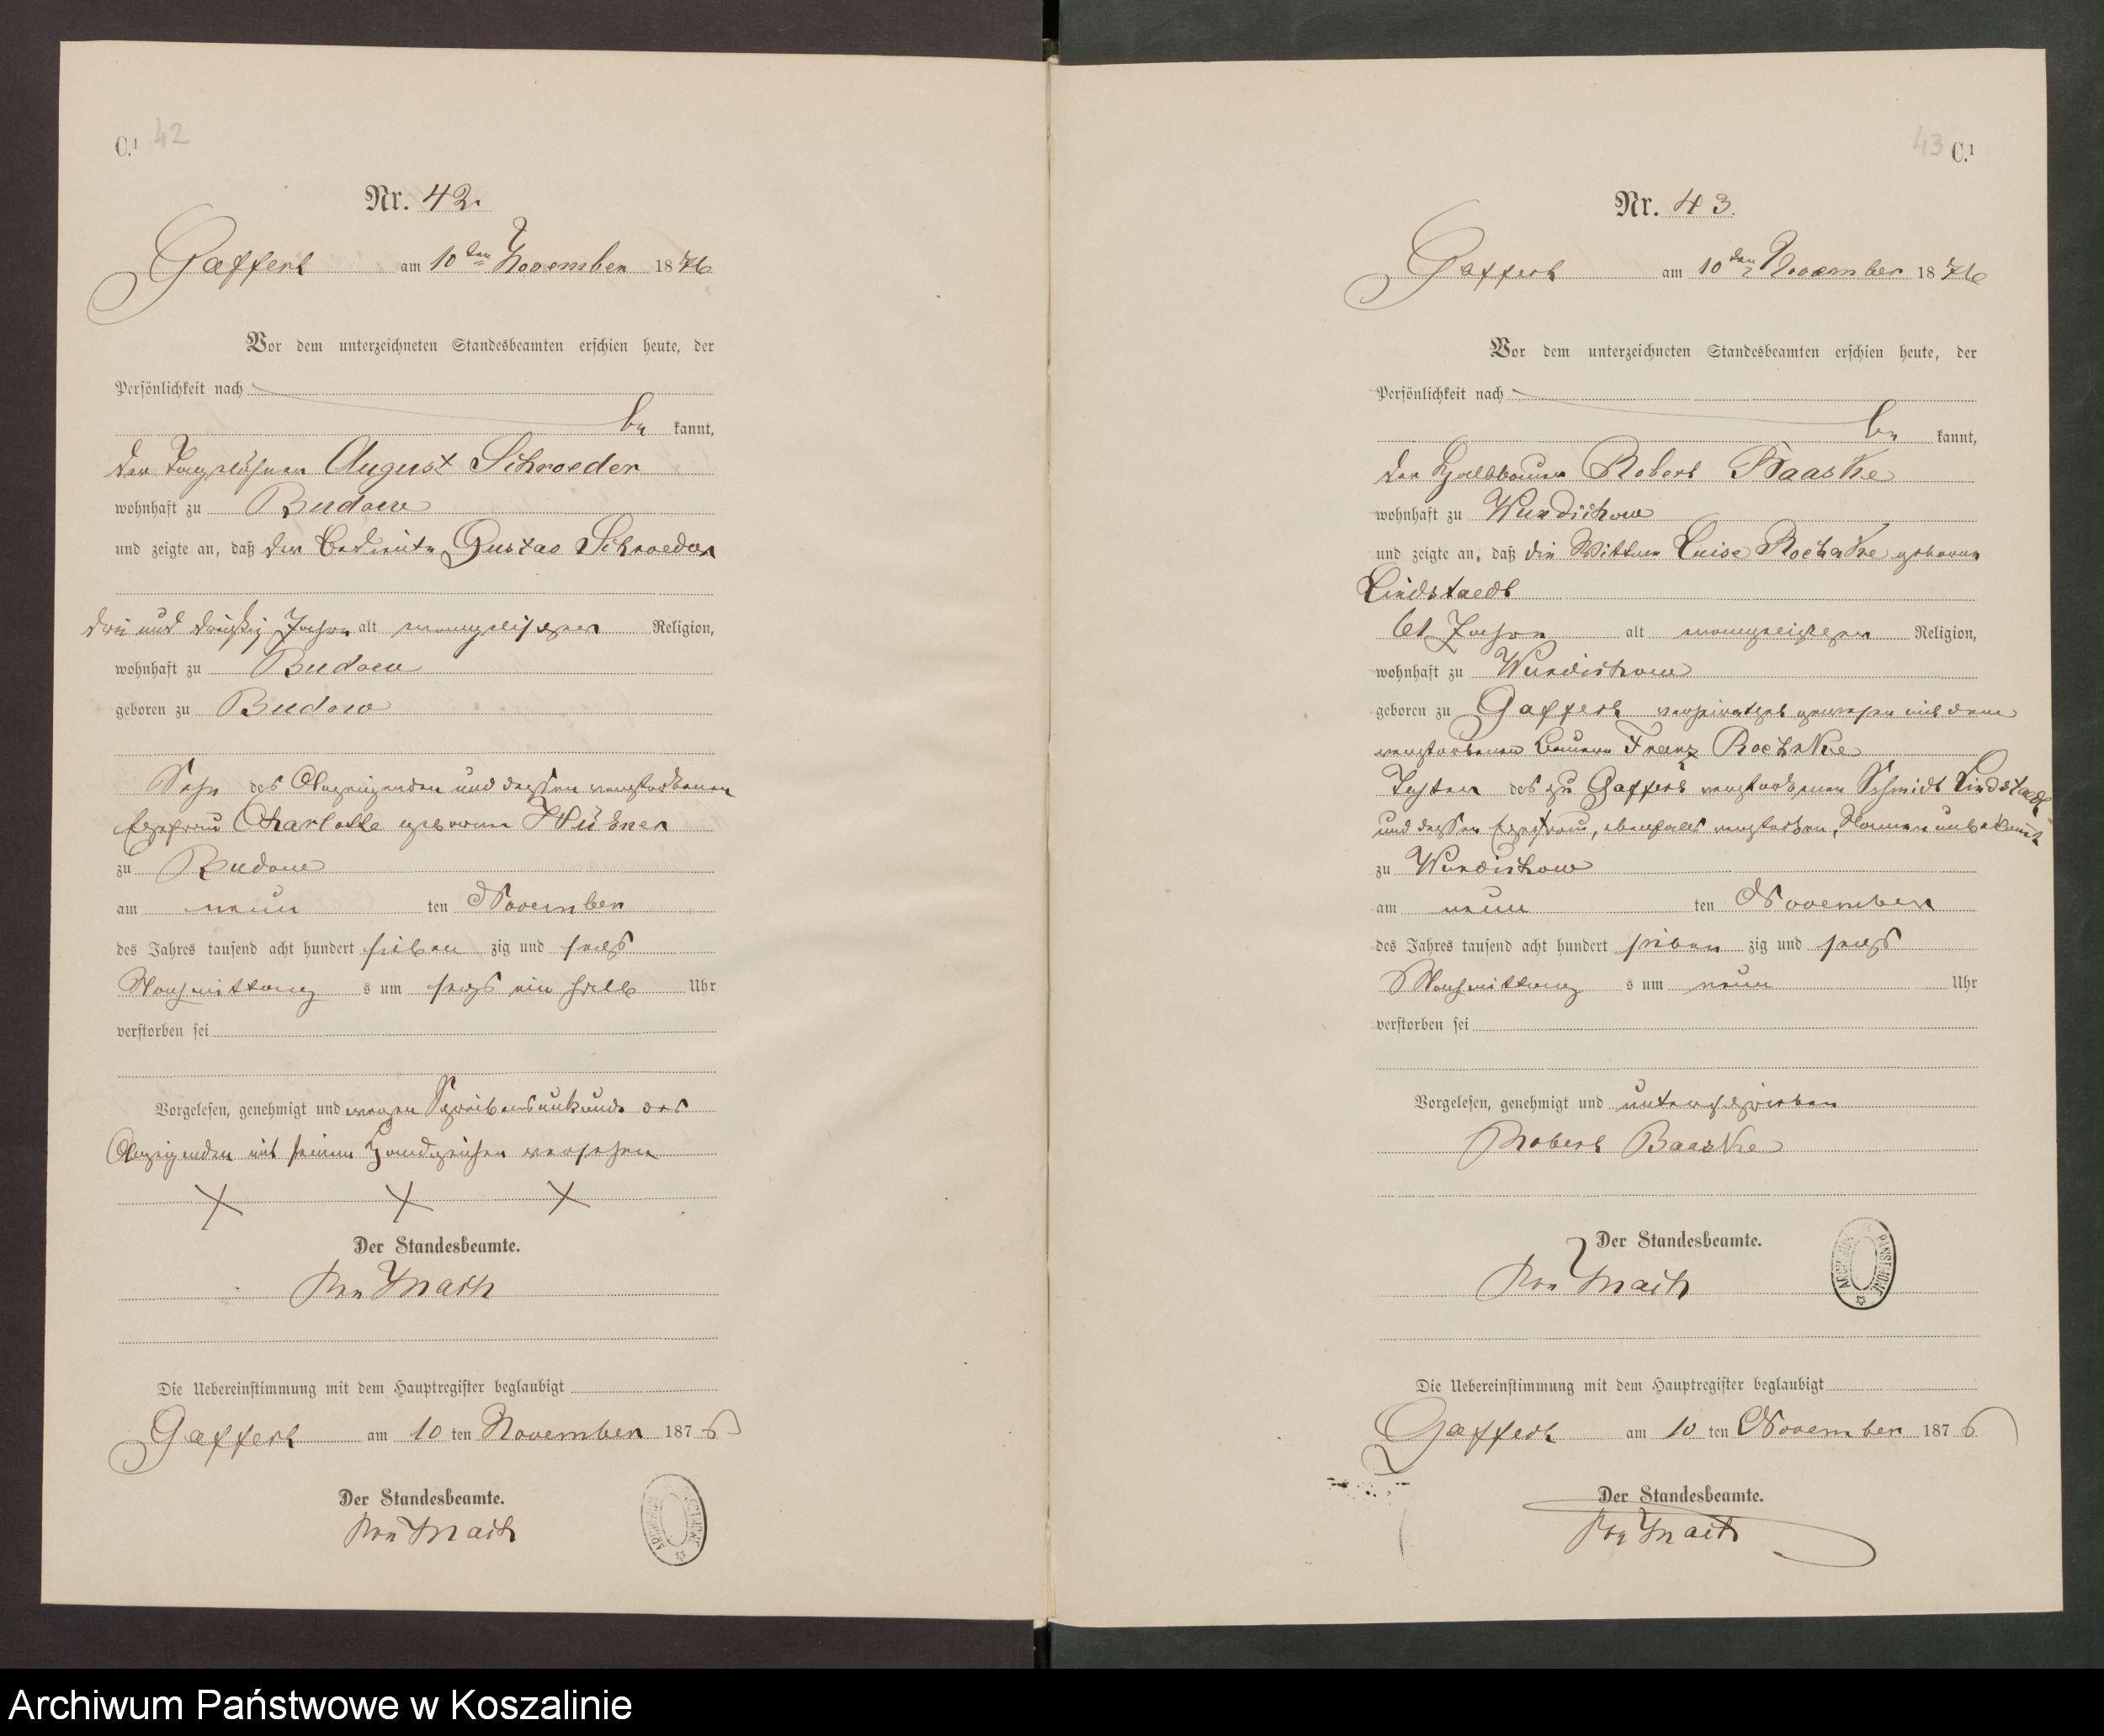 C.1 42
Nr. 42.
Gaffert am 10ten November 1876
Vor dem unterzeichneten Standesbeamten erschien heute, der
Persönlichkeit nach
be kannt,
der Tagelöhner August Schroeder
wohnhaft zu Budow
und zeigte an, daß der Bediente Gustav Schroeder
drei und dreißig Jahre alt evangelischer Religion,
wohnhaft zu Budow
geboren zu Budow
Sohn des Anzeigenden und dessen verstorbenen
Ehefrau Charlotte geborne Hübner
zu Budow
am neun ten November
des Jahres tausend acht hundert sieben zig und sechs
Nachmittag s um sechs ein halb Uhr
verstorben sei
Vorgelesen, genehmigt und wegen Schreibensunkunde des
Anzeigenden mit seinem Handzeichen versehen
X X X
Der Standesbeamte.
Von
Die Uebereinstimmung mit dem Hauptregister beglaubigt
Gaffert am 10 ten November 1876
Der Standesbeamte.
Von
ARCHIWUM PAŃSTWOWE
43 C.1
Nr. 43.
Gaffert am 10ten November 1876
Vor dem unterzeichneten Standesbeamten erschien heute, der
Persönlichkeit nach
be kannt,
der Halbbauer Robert Baaske
wohnhaft zu Wundichow
und zeigte an, daß die Wittwe Luise geborne
Lindstaedt
61 Jahre alt evangelischer Religion,
wohnhaft zu Wundichow
geboren zu Gaffert verheirathet gewesen mit dem
verstorbenen Bauern Franz
Tochter des zu Gaffert verstorbenen Schmidt Lindstaedt
und dessen Ehefrau, ebenfalls verstorben, Namen unbekannt
zu Wundichow
am neun ten November
des Jahres tausend acht hundert sieben zig und sechs
Nachmittag s um neun Uhr
verstorben sei
Vorgelesen, genehmigt und unterschrieben
Robert Baaske
Der Standesbeamte.
Von
ARCHIWUM PAŃSTWOWE
Die Uebereinstimmung mit dem Hauptregister beglaubigt
Gaffert am 10 ten November 1876
Der Standesbeamte.
Von
Archiwum Państwowe w Koszalinie